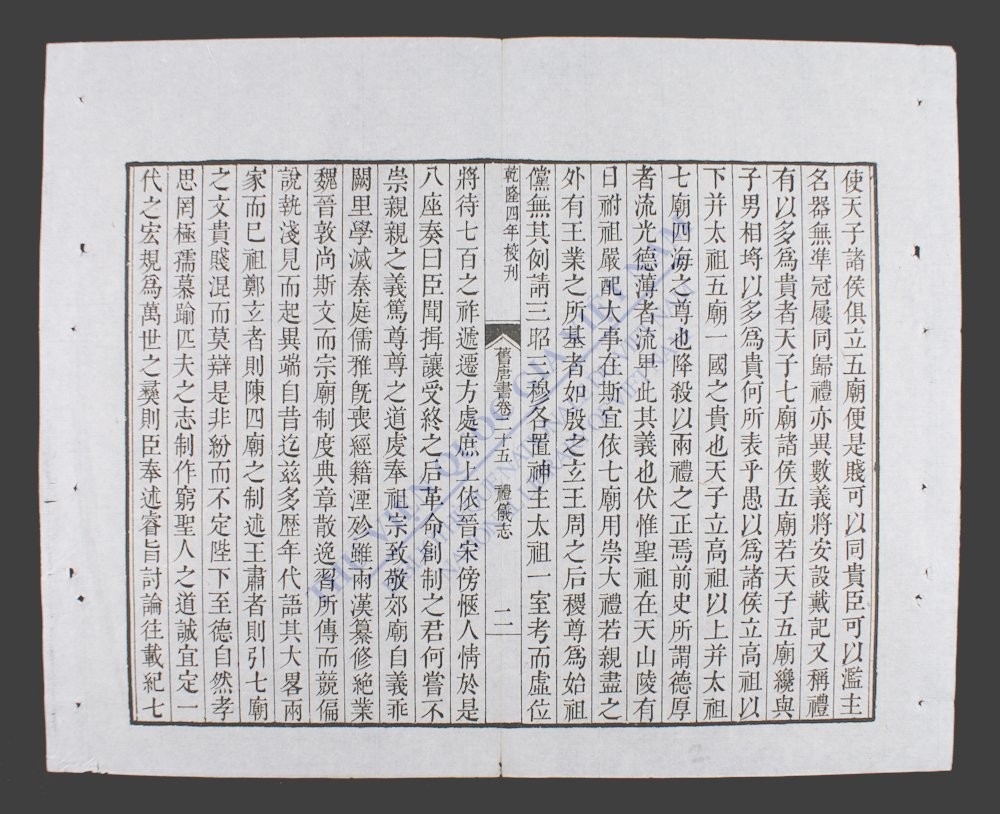 使天子諸侯俱立五廟便是賤可以同貴臣可以濫主
名器無準冠屨同歸禮亦異數義將安設戴記又稱禮
有以多爲貴者天子七廟諸侯五廟若天子五廟纔與
子男相埒以多爲貴何所表乎愚以爲諸侯立高祖以
下并太祖五廟一國之貴也天子立高祖以上并太祖
七廟四海之尊也降殺以兩禮之正焉前史所謂德厚
者流光德薄者流卑此其義也伏惟聖祖在天山陵有
日祔祖嚴配大事在斯宜依七廟用崇大禮若親盡之
外有王業之所基者如殷之玄王周之后稷尊爲始祖
儻無其例請三昭三穆各置神主太祖一室考而虛位
乾隆四年校刊
舊唐書卷二十五 禮儀志
二
將待七百之祚遞遷方處庶上依晉宋傍愜人情於是
八座奏曰臣聞揖讓受終之后革命創制之君何嘗不
崇親親之義篤尊尊之道虔奉祖宗致敬郊廟自義乖
闕里學滅秦庭儒雅旣喪經籍湮殄雖兩漢纂修絶業
魏晉敦尚斯文而宗廟制度典章散逸習所傳而競偏
說執淺見而起異端自昔迄兹多歷年代語其大畧兩
家而已祖鄭玄者則陳四廟之制述王肅者則引七廟
之文貴賤混而莫辯是非紛而不定陛下至德自然孝
思罔極孺慕踰匹夫之志制作窮聖人之道誠宜定一
代之宏規爲萬世之彝則臣奉述睿旨討論往載紀七